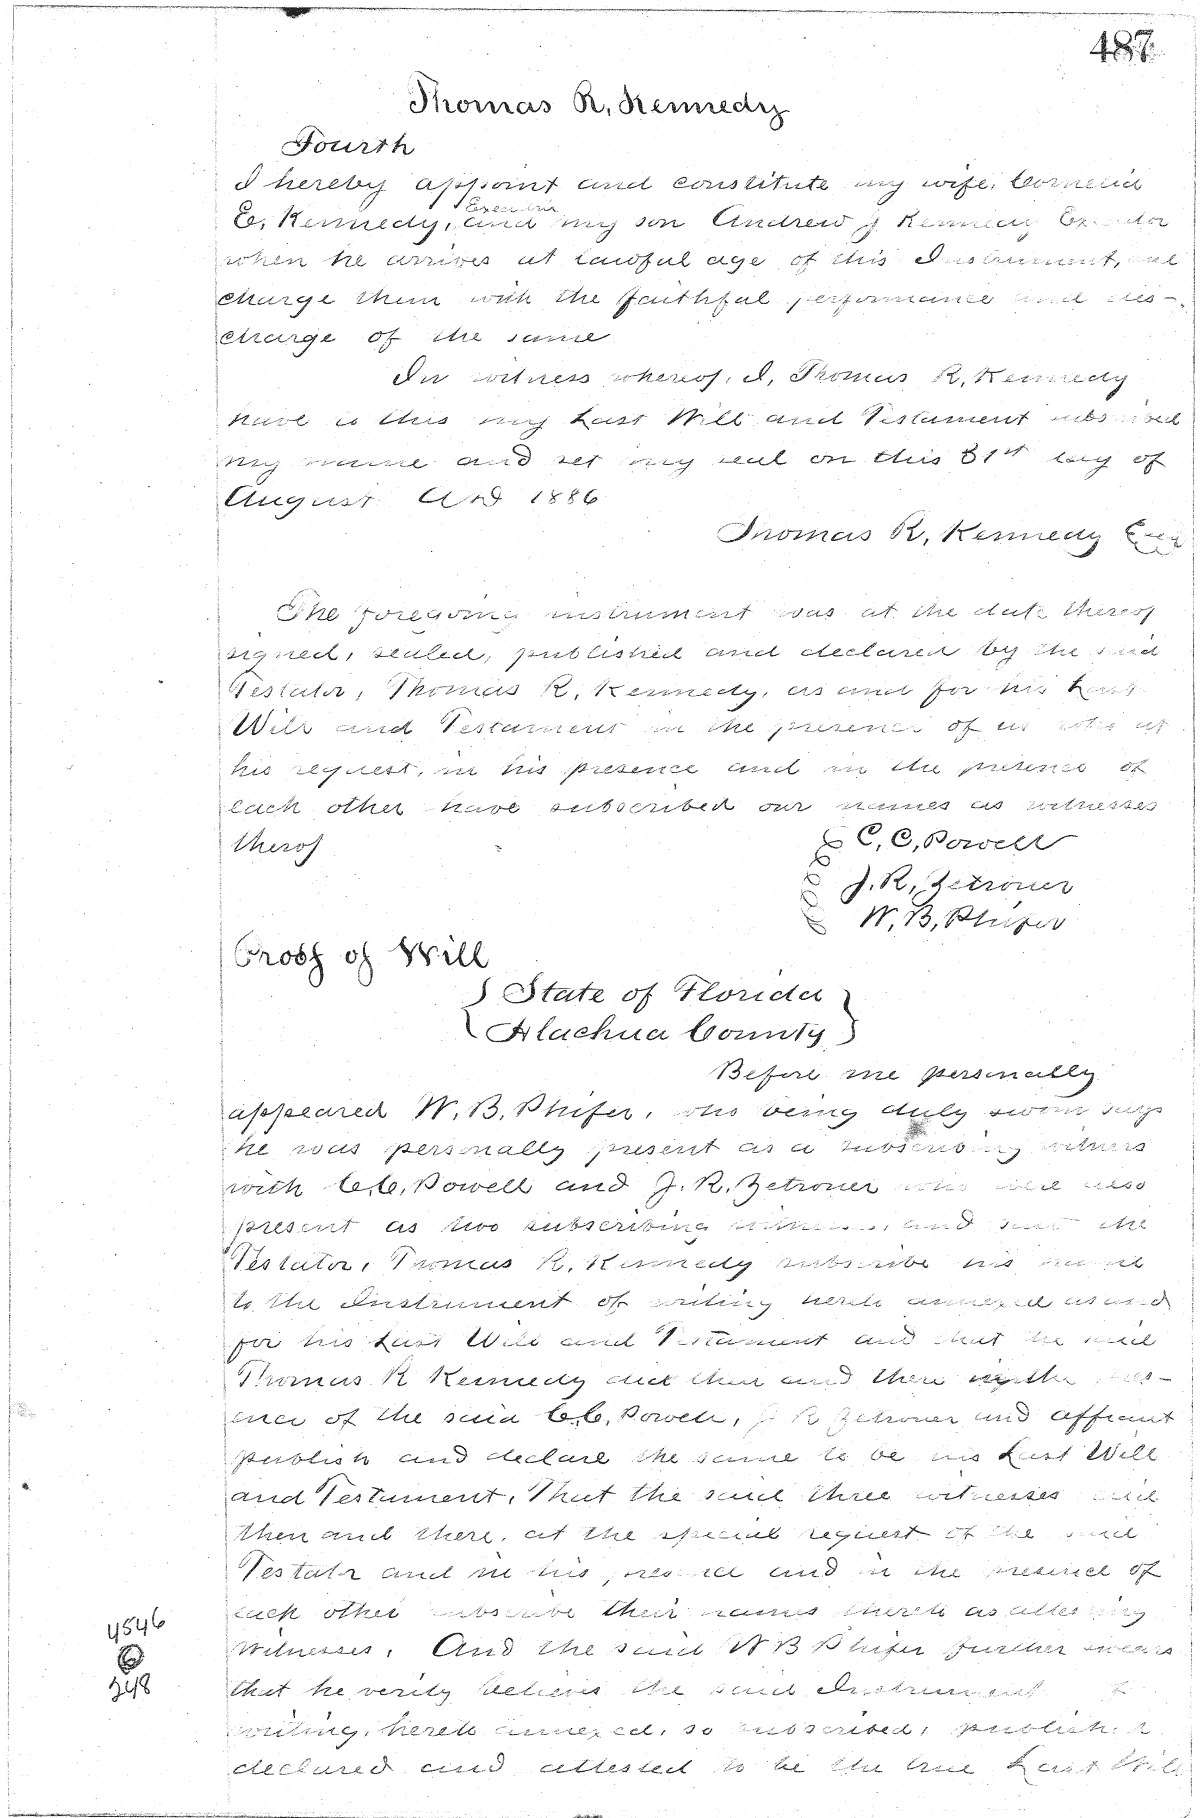 487
Thomas R. Kennedy
Fourth
I hereby appoint and constitute my wife, Cornelia
Executrix
E. Kennedy, and my son Andrew J Kennedy Executor
when he arrives at lawful age of this Instrument,
charge them with the faithful performance and dis-
charge of the same
In witness whereof, I, Thomas R. Kennedy
have to this my Last Will and Testament subscribed
my name and set my seal on this 31st day of
August AD 1886
Thomas R. Kennedy
The foregoing instrument was at the date thereof
signed, sealed, published and declared by the said
Testator, Thomas R. Kennedy, as and for his Last
Will and Testament in the presence of us who at
his request, in his presence and in the presence of
each other have subscribed our names as witnesses
therof
C. C. Powell
J. R. Zetrouer
W. B. Phifer
Proof of Will
State of Florida
Alachua County
Before me personally
appeared W. B. Phifer, who being duly sworn says
he was personally present as a subscribing witness
with C.C. Powell and J. R. Zetrouer who were also
present as two subscribing and saw the
Testator, Thomas R. Kennedy subscribe his name
to the Instrument of writing hereto annexed as and
for his Last Will and Testament and that he said
Thomas R Kennedy did then and there in the pres-
ence of the said C.C. Powell, J R Zetrouer and affiant
publish and declare the same to be his Last Will
and Testament, That the said three witnesses did
then and there, at the special request of the said
Testatr and in his presence and in the presence of
each other subscribe their names thereto as attesting
witnesses. And the said W B Phifer further swears
that he verily believes the said Instrument
writing, hereto annexed, so subscribed, published
declared and attested to be the true Last Will
4546
6
248